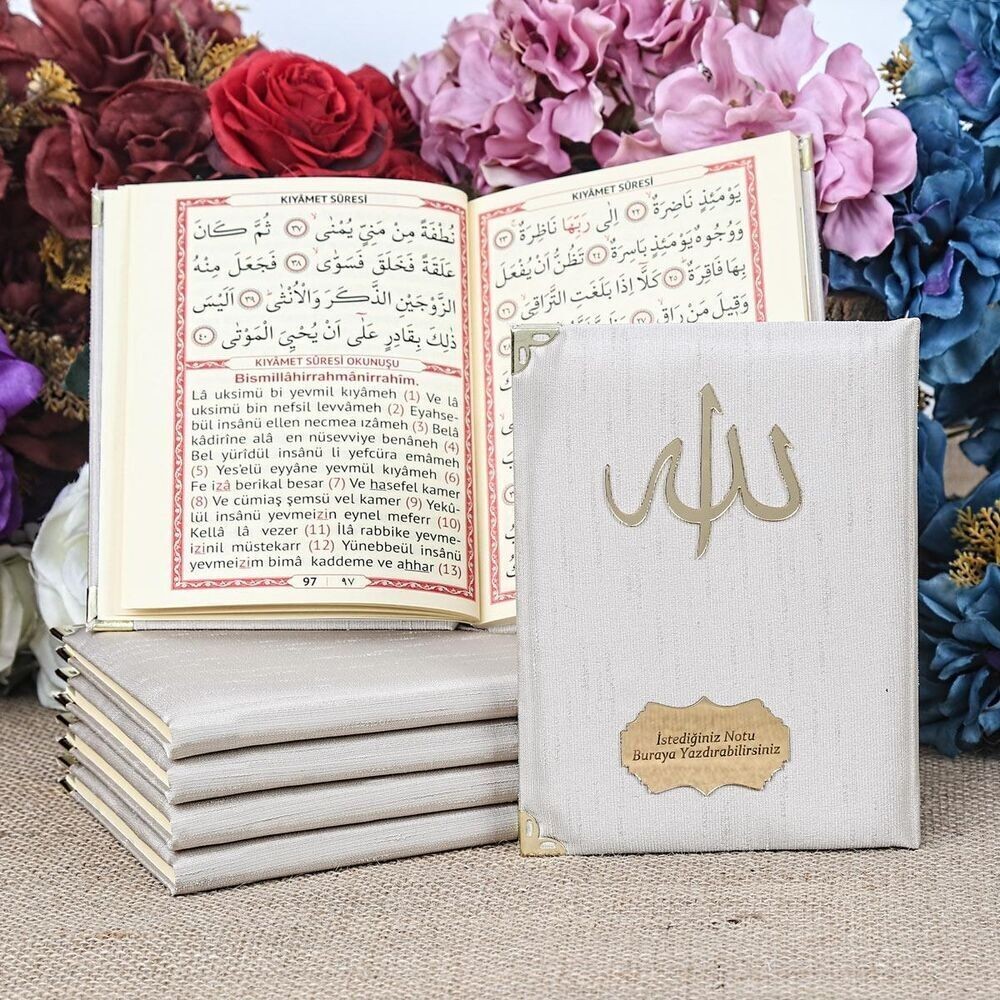 KIYÂMET SÛRESİ
نُطْفَةً مِنْ مَنِيٍّ يُمْنٰىۙ ﴿٣٧﴾ ثُمَّ كَانَ
عَلَقَةً فَخَلَقَ فَسَوّٰىۙ ﴿٣٨﴾ فَجَعَلَ مِنْهُ
الزَّوْجَيْنِ الذَّكَرَ وَالْاُنْثٰىۜ ﴿٣٩﴾ اَلَيْسَ
ذٰلِكَ بِقَادِرٍ عَلٰٓى اَنْ يُحْيِيَ الْمَوْتٰى ﴿٤٠﴾
KIYÂMET SÛRESİ OKUNUŞU
Bismillâhirrahmânirrahîm.
Lâ uksimü bi yevmil kıyâmeh (1) Ve lâ
uksimü bin nefsil levvâmeh (2) Eyahse-
bül insânü ellen necmea ızâmeh (3) Belâ
kâdirîne alâ en nüsevviye benâneh (4)
Bel yürîdül insânü li yefcüra emâmeh
(5) Yes'elü eyyâne yevmül kıyâmeh (6)
Fe izâ berikal besar (7) Ve hasefel kamer
(8) Ve cümiaş şemsü vel kamer (9) Yekû-
lül insânü yevmeizin eynel meferr (10)
Kellâ lâ vezer (11) İlâ rabbike yevme-
izinil müstekarr (12) Yünebbeül insânü
yevmeizim bimâ kaddeme ve ahhar (13)
97 | ٩٧
KIYÂMET SÛRESİ
يَوْمَئِذٍ نَاضِرَةٌۙ ﴿٢٢﴾ اِلٰى رَبِّهَا نَاظِرَةٌۚ ﴿٢٣﴾
وَوُجُوهٌ يَوْمَئِذٍ بَاسِرَةٌۙ ﴿٢٤﴾ تَظُنُّ اَنْ يُفْعَلَ
بِهَا فَاقِرَةٌۜ ﴿٢٥﴾ كَلَّٓا اِذَا بَلَغَتِ التَّرَاقِيَۙ ﴿٢٦﴾
وَقِيلَ مَنْ رَاقٍۙ ﴿٢٧﴾
الله
İstediğiniz Notu
Buraya Yazdırabilirsiniz